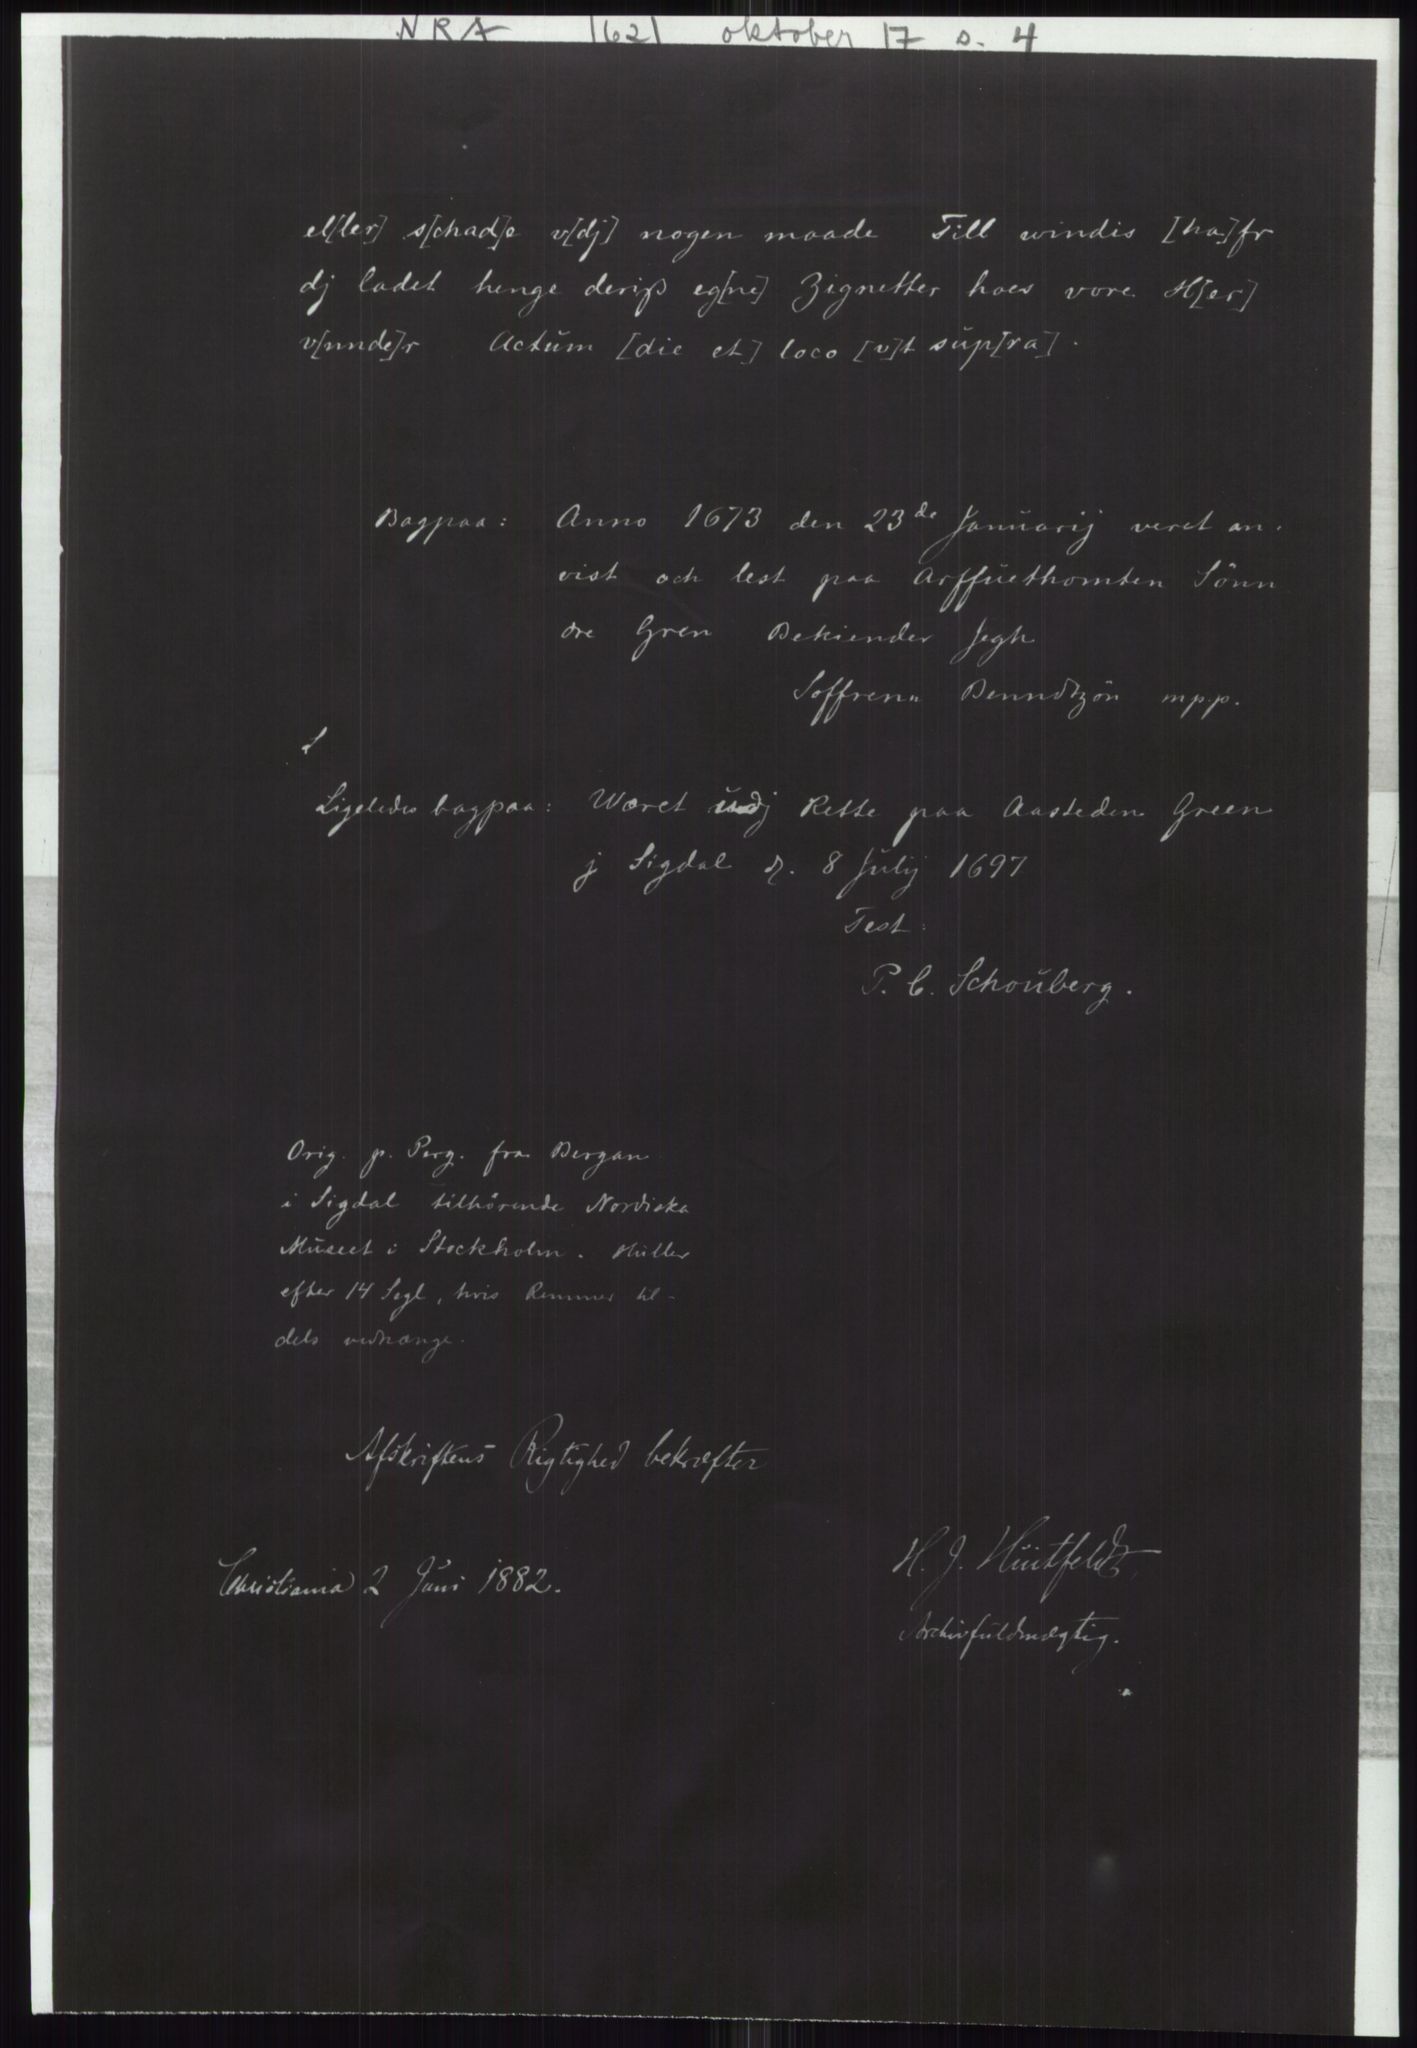 NRA 1621 oktober 17 s. 4
el[ler] s[chad]e v[dj] nogen maade Till windis [ha]fr
dj ladet henge deriß eg[ne] Zignetter hoes vore H[er]
v[nnde]r Actum [die et] loco [v]t sup[ra].
Bagpaa: Anno 1673 den 23de Januarij veret an-
vist och lest paa Arffuethomten Sönn
dre Gren Bekiender Jegh
Soffrenn Benndtzön mpp.
Ligeledes bagpaa: Wæret udj Rette paa Aasteden Green
j Sigdal d. 8 Julij 1697
Test:
P. C. Schouberg.
Orig. p. Perg. fra Bergan
i Sigdal tilhörende Nordiska
Museet i Stockholm. Huller
efter 14 Segl, hvis Remmer til-
dels vedhænge.
Afskriftens Rigtighed bekræfter
Christiania 2 Juni 1882.
H. J. Huitfeldt,
Archivfuldmægtig.